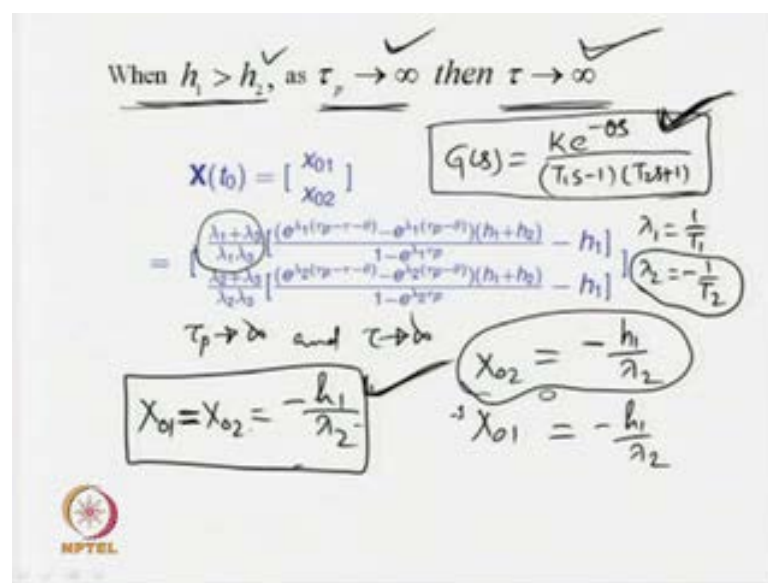 When h₁ > h₂, as τₚ → ∞ then τ → ∞
G(s) = Ke^{-θs} / (T₁s-1)(T₂s+1)
X(t₀) = [ x₀₁ x₀₂ ]
= [ λ₁+λ₃/λ₁λ₃ [ (e^{λ₁(τp-τ-θ)} - e^{λ₁(τp-θ)})(h₁+h₂) / 1 - e^{λ₁τp} - h₁ ]
λ₂+λ₃/λ₂λ₃ [ (e^{λ₂(τp-τ-θ)} - e^{λ₂(τp-θ)})(h₁+h₂) / 1 - e^{λ₂τp} - h₁ ] ]
λ₁ = 1/T₁
λ₂ = -1/T₂
τp → ∞ and τ → ∞
X₀₂ = -h₁/λ₂
X₀₁ = X₀₂ = -h₁/λ₂
X₀₁ = -h₁/λ₂
NPTEL